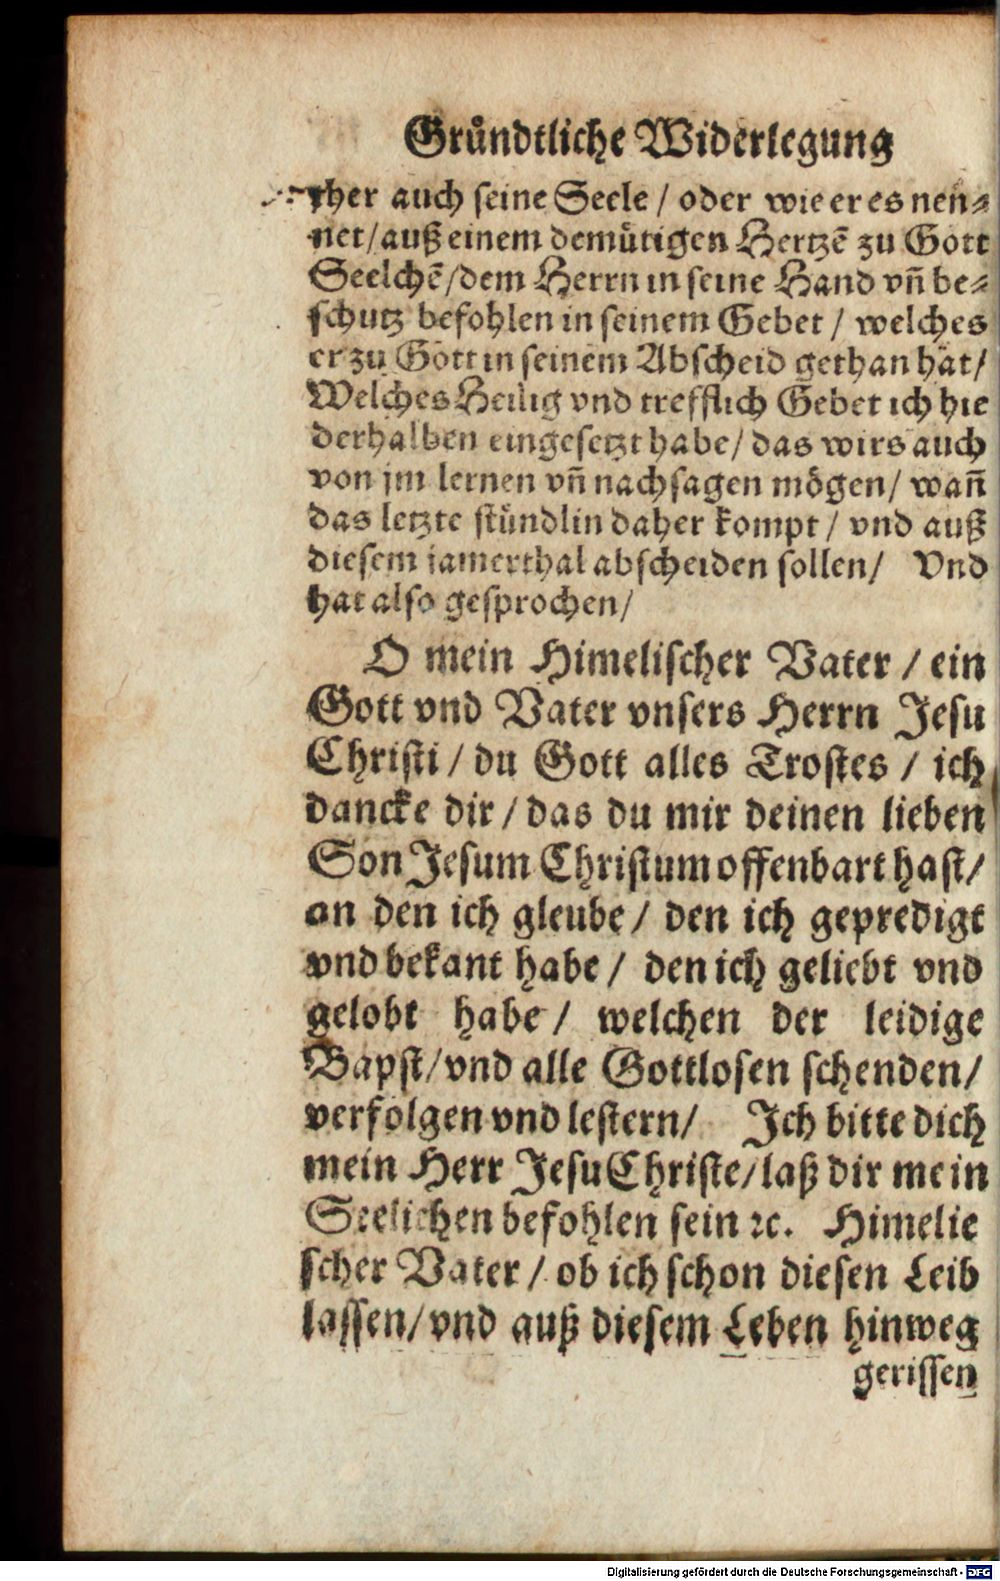 Gründtliche Widerlegung
ther auch seine Seele / oder wie er es nen⸗
net/auß einem demütigen Hertzē zu Gott
Seelchē/dem Herrn in seine Hand vn̄ be⸗
schutz befohlen in seinem Gebet / welches
er zu Gott in seinem Abscheid gethan hat/
Welches Heilig vnd trefflich Gebet ich hie
derhalben eingesetzt habe/ das wirs auch
von jm lernen vn̄ nachsagen mögen/ wan̄
das letzte stündlin daher kompt / vnd auß
diesem iamerthal abscheiden sollen/ Vnd
hat also gesprochen/
O mein Himelischer Vater / ein
Gott vnd Vater vnsers Herrn Jesu
Christi / du Gott alles Trostes / ich
dancke dir / das du mir deinen lieben
Son Jesum Christum offenbart hast/
an den ich gleube / den ich gepredigt
vnd bekant habe / den ich geliebt vnd
gelobt habe / welchen der leidige
Bapst/vnd alle Gottlosen schenden/
verfolgen vnd lestern/ Ich bitte dich
mein Herr Jesu Christe/laß dir mein
Seelichen befohlen sein ꝛc. Himelie
scher Vater / ob ich schon diesen Leib
lassen/vnd auß diesem Leben hinweg
gerissen
Digitalisierung gefördert durch die Deutsche Forschungsgemeinschaft - DFG